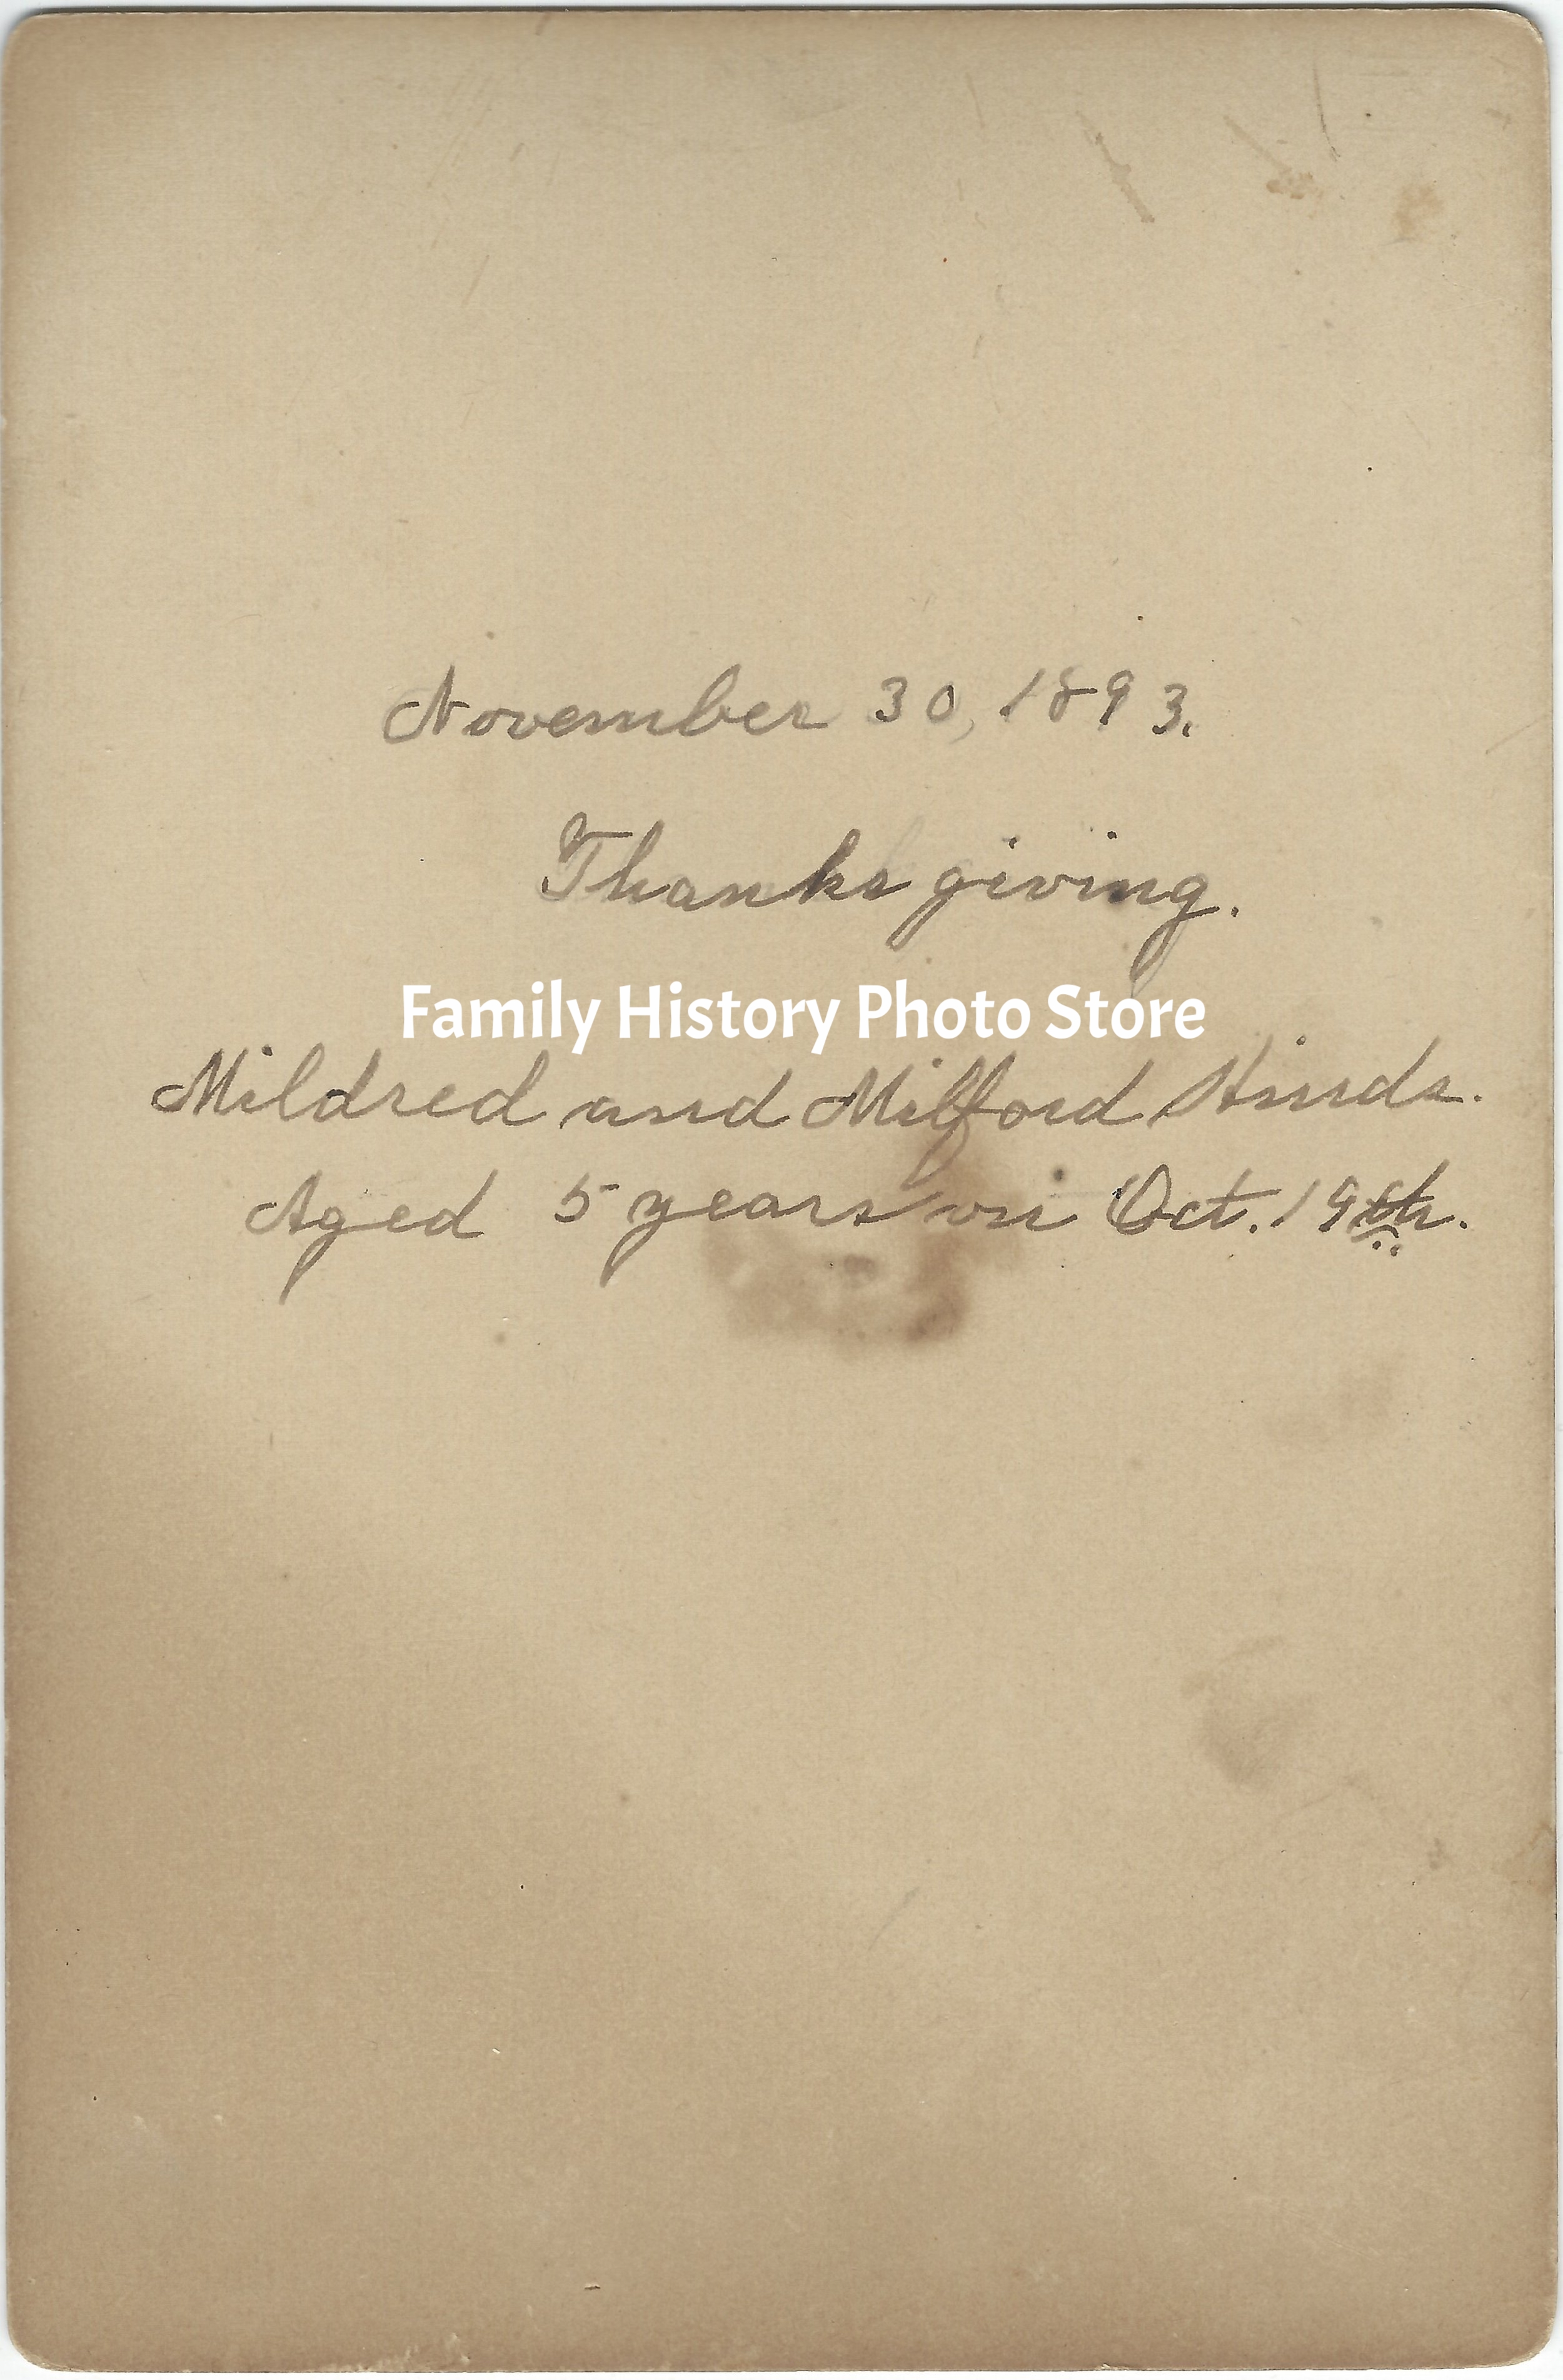 November 30, 1893.
Thanksgiving.
Family History Photo Store
Mildred and Milford Hinds.
Aged 5 years on Oct. 19th.